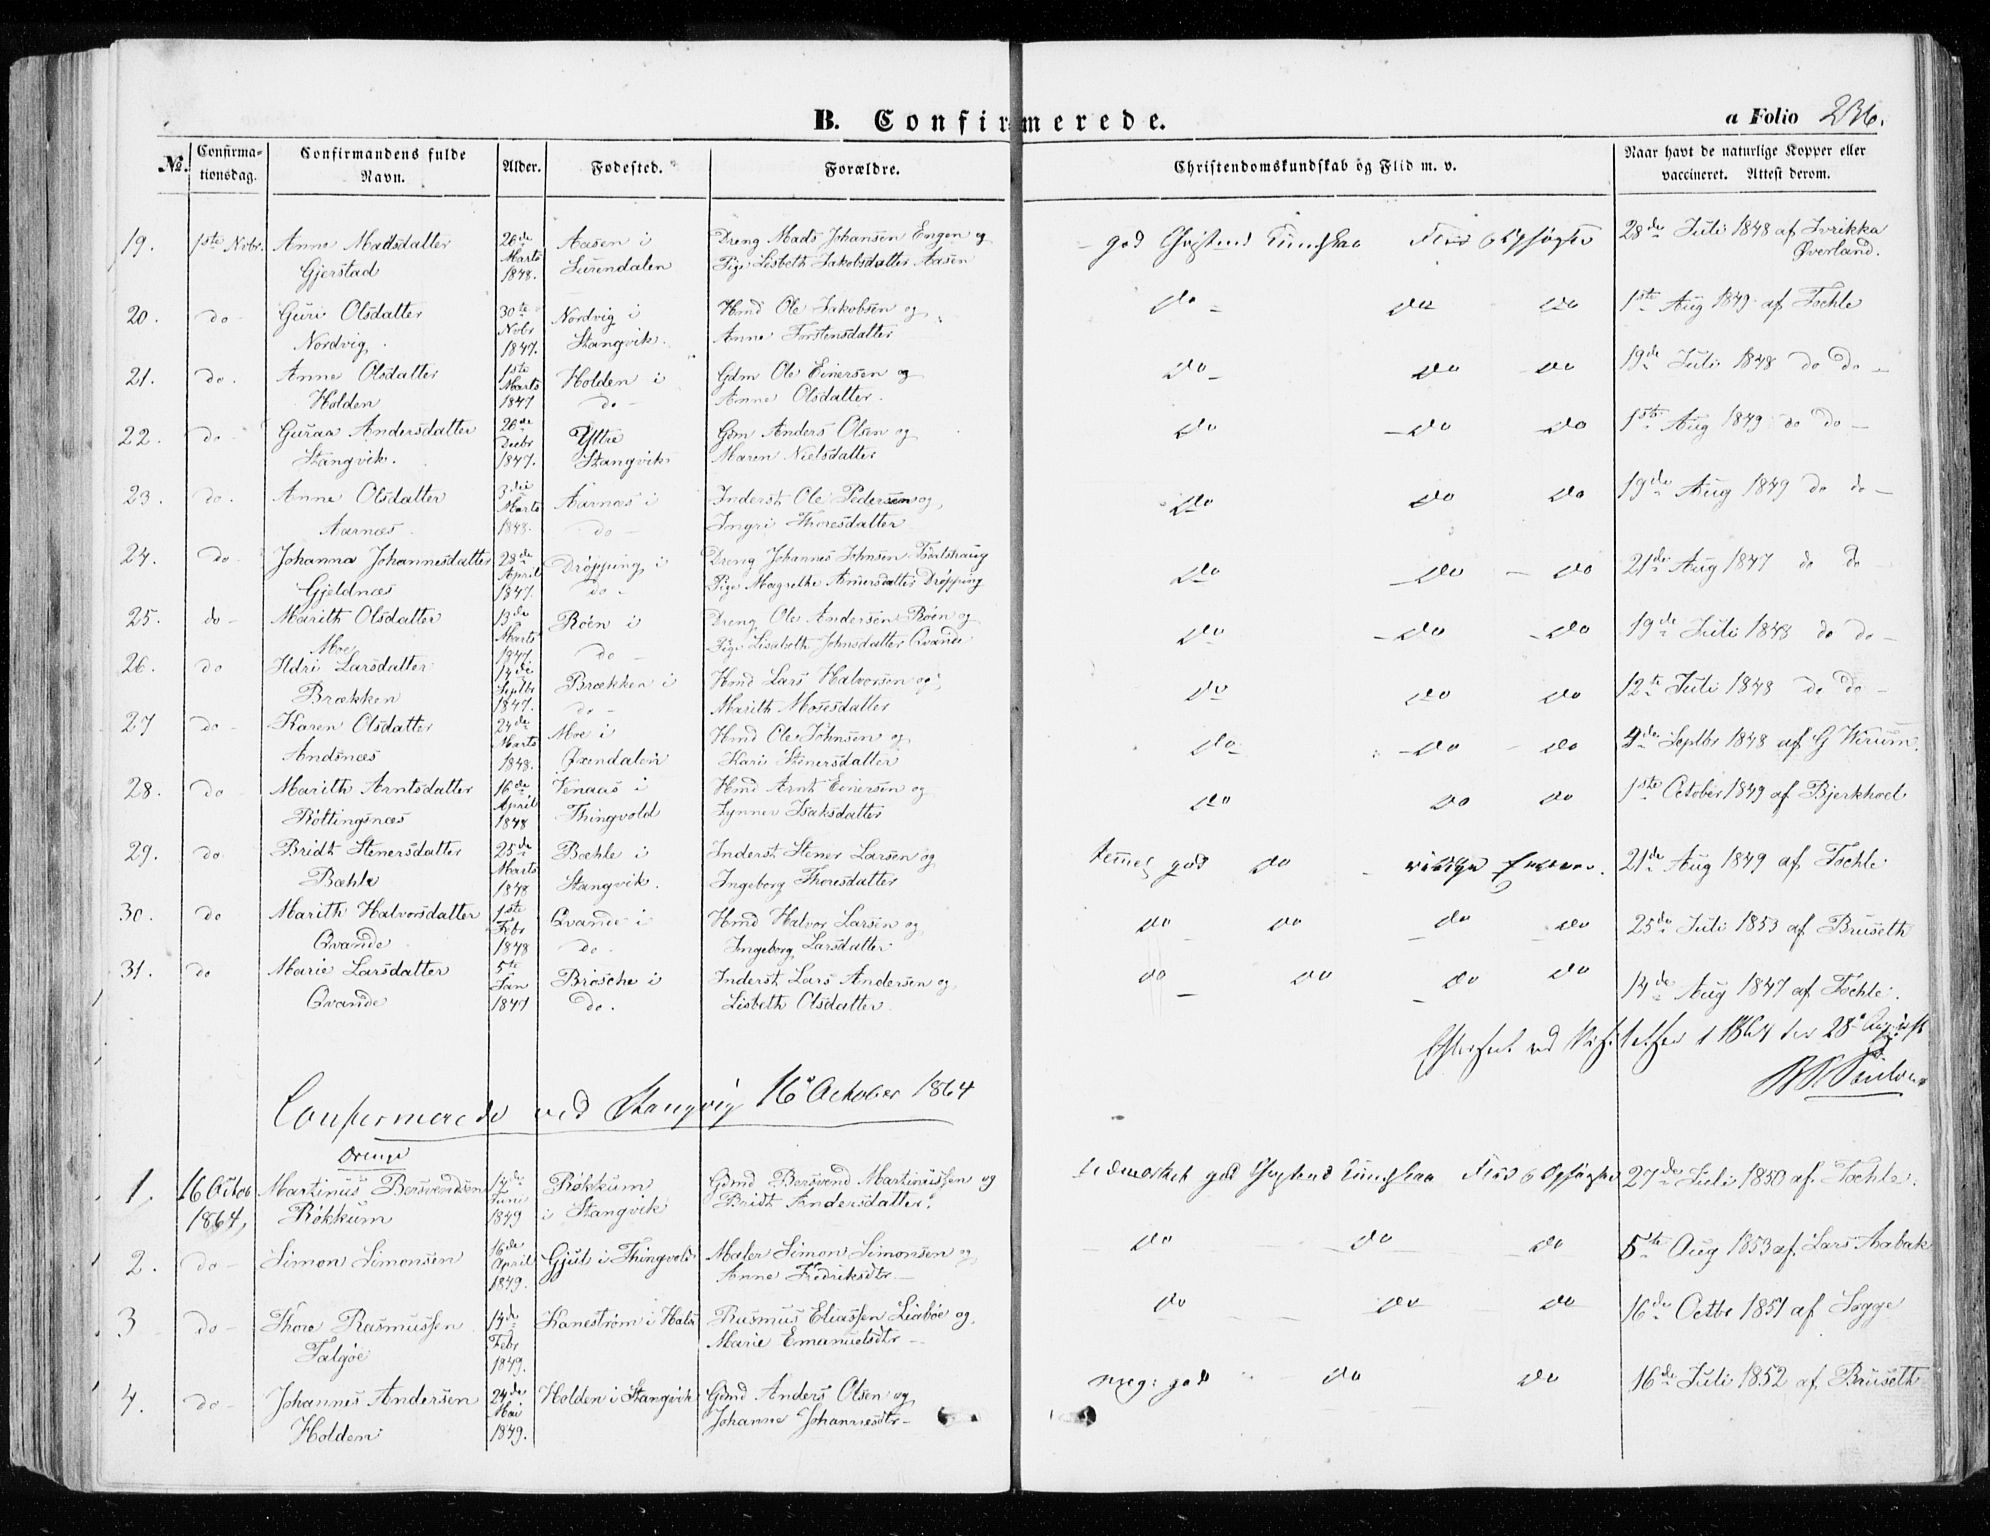 B. Confirmerede.
a Folio 236.
No. Confirmationsdag. Confirmandens fulde Navn. Alder. Fødested. Forældre. Christendomskundskab og Flid m. v. Naar havt de naturlige Kopper eller vaccineret. Attest derom.
19. 1ste Novbr. Anne Madsdatter 26de Aasen i Dreng Mads Johansen Engen og god Christends Kundskab Flid 28de Juli 1848 af
Gjerstad Marts 1848. Surendalen Pige Lisbeth Jakobsdatter Aasen Øverland.
20. do Guri Olsdatter 30te Nordvig i Hmd Ole Jakobsen og do do do 1ste Aug 1849 af Tochle
Nordvig Novbr 1847. Stangvik. Anne Torstensdatter
21. do. Anne Olsdatter 1ste Holden i Gdm Ole Einersen og do do do 19de Juli 1848 do do
Holden Marts 1847 do Anne Olsdatter.
22. do Guraa Andersdatter 26de Ytre Gdm Anders Olsen og do do do 1ste Aug 1849 do do
Stangvik. Decbr 1847. Stangvik Maren Nielsdatter
23. do. Anne Olsdatter 3die Aarnæs i Inderst Ole Pedersen og do do do 19de Aug 1849 do do
Aarnæs Marts 1848. do Ingri Thoresdatter
24. do Johanna Johannesdatter 28de Drøpping i Dreng Johannes Johnsen do do do 21de Aug 1847 do do
Gjeldnæs April 1847. do Pige Magrethe Drøpping
25. do Marith Olsdatter 13de Røen i Dreng Ole Andersen Røen og do do do 19de Juli 1848 do do
Moe Marts 1847 do Pige Lisabeth Johnsdatter Qvande
26. do Ildri Larsdatter Brækken i Hmd Lars Halvorsen og do do do 12te Juli 1848 do do
Brækken Septbr 1847. do Marith Mosesdatter
27 do Karen Olsdatter 24de Moe i Hmd Ole Johnsen og do do do 4de Septbr 1848 af G Wirum.
Andsnæs Marts 1848. Øxendalen Kari Stenersdatter
28. do Marith Arntsdatter 16de Venaas i Hmd Arnt Einersen og do do do 1ste October 1849 af Bjerkhoel
Røttingsnæs April 1848 Thingvold Synnev Isaksdatter
29. do Bridt Stenersdatter 25de Bæhle i Inderst Stener Larsen og temelig god do 21de Aug 1849 af Tochle
Bæhle Marts 1848 Stangvik. Ingeborg Thoresdatter
30. do Marith Halvorsdatter 1ste Qvande i Hmd Halvor Larsen og do do do do 25de Juli 1853 af Bruseth
Qvande Febr 1848 do Ingeborg Larsdatter
31. do Marie Larsdatter 5te Brøsche i Inderst Lars Andersen og do do do do 14de Aug 1847 af Tochle.
Qvande Jan 1847 do. Lisbeth Olsdatter
Efterseet ved Visitatsen i 1864 den 28de August
Confirmerede ved Stangvig 16de October 1864
Drenge
1. 16 Octob Martinus Bersvendsen 14de Røkkum Gdmd Bersvend Martinussen og udmærket god Christends Kundskab Flid 27de Juli 1850 af Tochle.
1864, Røkkum Juni 1849 i Stangvik Bridt Andersdatter.
2. do Simon Simonsen 16de Gjul i Thingvold Maler Simon Simonsen og do do do 5te Aug 1853 af Lars Aabak
April 1849. Anne Fredriksdtr
3 do Thore Rasmussen 14de Kanestrøm i Halse Rasmus Eliassen Liabøe og do do do 16de Octbr 1851 af Sogge
Talgøe Febr 1849. Marie Emanuelsdtr
4. do Johannes Andersen 24de Holden i Stangvik Gdmd Anders Olsen og meg: god do do 16de Juli 1852 af Bruseth
Holden Mai 1849. Johanne Johannesdtr